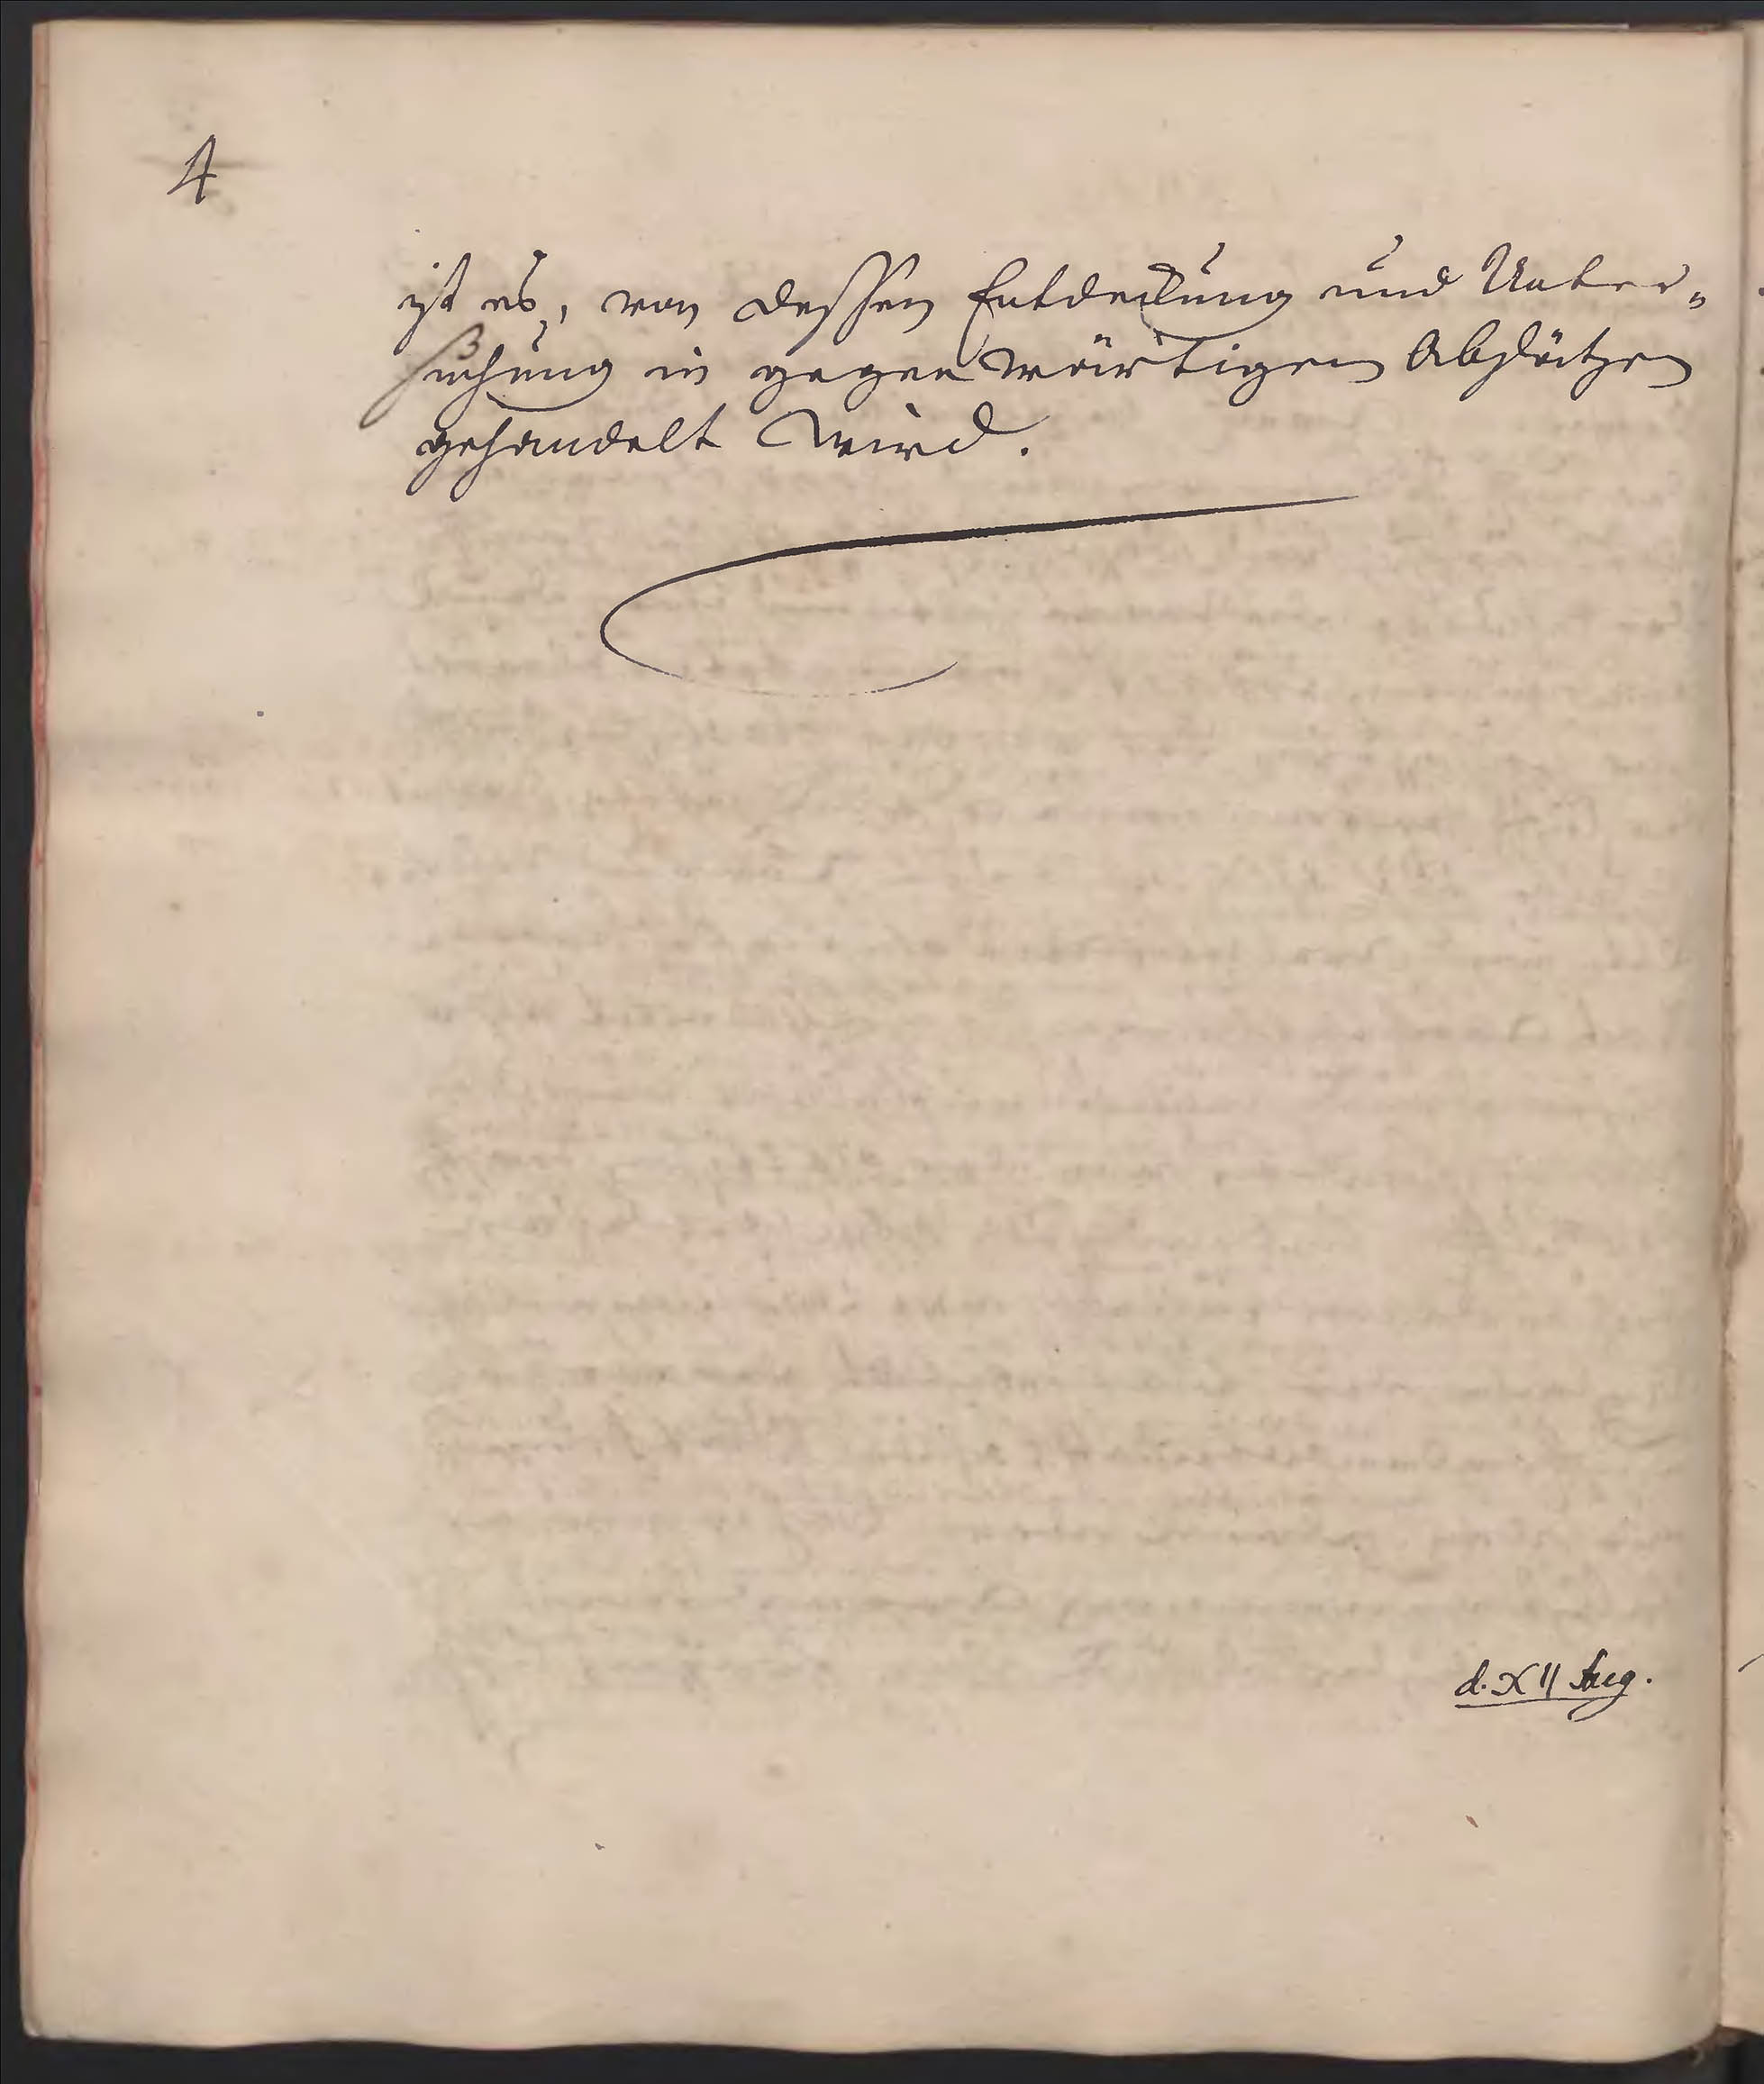 4
ist es, von dessen Entdeckung und Unter„
suchung in gegenwärtigen Absätzen
gehandelt wird.
d. XII Aug.